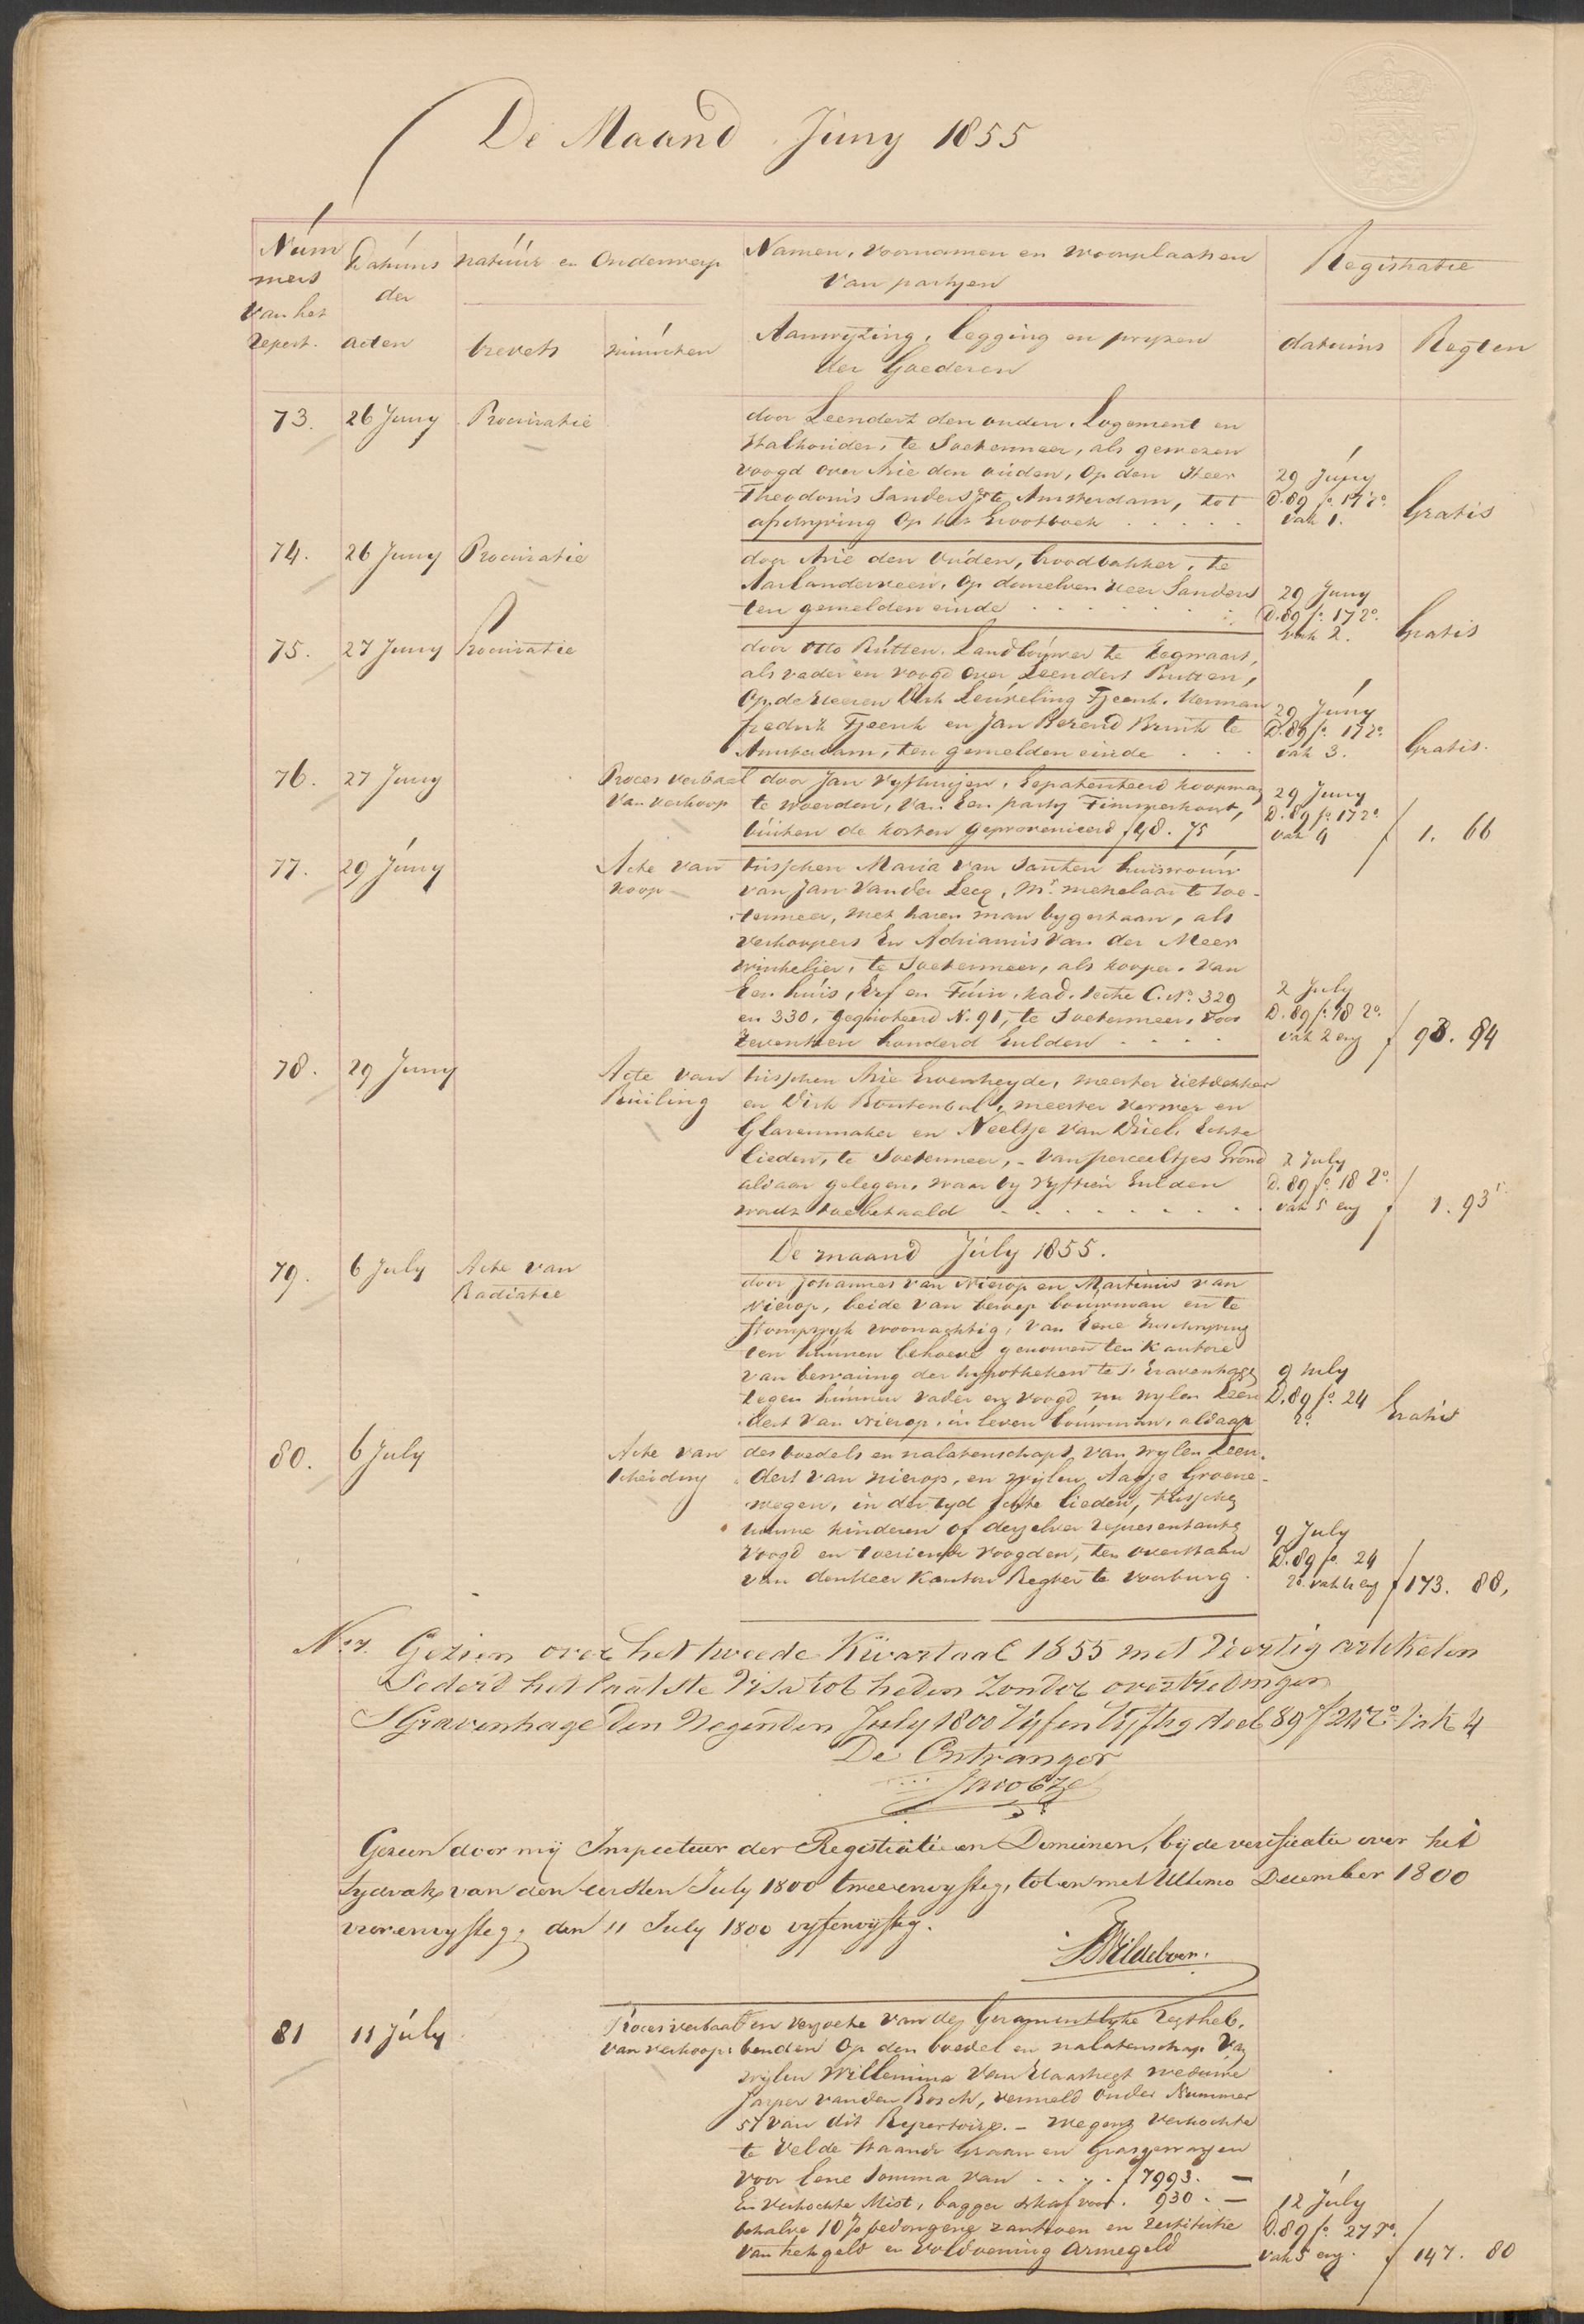 De Maand Juny 1855
Num
mers
van het
Repert.
Datums
der
acten
natuur en Onderwerp
brevets
minuten
Namen, voornamen en woonplaatsen
van partyen
Aanwyzing, legging en pryzen
der Goederen
Registratie
datums
Regten
73. 26 Juny Procuratie
door Leendert den ouden, Logement en
Stalhouder, te Soetermeer, als gewezen
voogd over Arie den ouden, Op den Heer
Theodorus Sanders te Amsterdam, tot
afschryving Op het Grootboek
29 Juny
D. 89 fo. 17 ro.
vak 1.
Gratis
74. 26 Juny Procuratie
door Arie den Ouden, broodbakker, te
Aarlanderveen, Op denzelven Heer Sanders
ten gemelden einde
29 Juny
D. 89 fo. 17 ro.
vak 2.
Gratis
75. 27 Juny Procuratie
door Otto Rutten, Landbouwer te Zegwaart,
als vader en voogd over Leendert Rutten,
Op de Heeren Dirk Leuveling Tjeenk, Herman
fredrik Tjeenk en Jan Berend Brink te
Amsterdam, ten gemelden einde
29 Juny
D. 89 fo. 17 ro.
vak 3.
Gratis.
76. 27 Juny
Proces verbaal
van verkoop
door Jan Vyfhuizen, Gepatenteerd koopman
te Woerden, van Een party Timmerhout,
buiten de kosten geprovenieerd f 48. 75
29 Juny
D. 89 fo. 17 ro.
vak 4
f 1. 66
77. 29 Juny
Acte van
koop
tusschen Maria van Santen huisvrouw
van Jan Vander Lecq, Mr. metselaar te Soe-
termeer, met haren man bygestaan, als
verkoopers En Adrianus Van der Meer
winkelier, te Soetermeer, als kooper. Van
Een huis, Erf en Tuin, kad. sectie C. No. 329
en 330, gequoteerd N. 91, te Soetermeer, voor
zeventien honderd Gulden
2 July
D. 89 fo. 18 ro.
vak 2 env
f 93. 84
78. 29 Juny
Acte van
Ruiling
tusschen Arie Groenheyde, meester rietdekker
en Dirk Boutenbal, meester Verwer en
Glazenmaker en Neeltje Van Driel, Echte
lieden, te Soetermeer, - Van perceeltjes Grond
aldaar gelegen, waar by vyftien Gulden
wordt toebetaald
2 July
D. 89 fo. 18 ro.
vak 5 env
f 1. 93
De maand July 1855.
79. 6 July Acte van
Radiatie
door Johannes van Nierop en Martinus van
Nierop, beide van beroep bouwman en te
Stompwyk woonachtig, Van Eene Inschryving
ten hunnen behoeve genomen ten Kantore
van bewaring der hypotheken te 's Gravenhage
tegen hunnen vader en voogd nu wylen Leen
dert Van Nierop, in leven bouwman, aldaar
9 July
D. 89 fo. 24
ro.
Gratis
80. 6 July
Acte van
scheiding
des boedels en nalatenschaps van wylen Leen-
dert van Nierop, en wylen Aagje Groene-
wegen, in der tyd Echte lieden, tusschen
hunne kinderen of derzelver representanten
Voogd en toeziende voogden, ten overstaan
van den Heer Kanton Regter te Voorburg
9 July
D. 89 fo. 24
ro. vak 4 env
f 173. 88,
Gezien over het tweede Kwartaal 1855 met Veertig artikelen
Sedert het laatste Visa tot heden zonder overtredingen
S Gravenhage den Negenden July 1800 Vyf en Vyftig deel 89 f 24 ro vak 4
De Ontvanger
Gezien door mij Inspecteur der Registratie en Domeinen, bij de verificatie over het
tydvak van den eersten July 1800 tweeenvyftig, tot en met Ultimo December 1800
vierenvyftig, den 11 July 1800 vyfenvijftig.
81 11 July
Proces verbaal
van verkoop
ten verzoeke van de Gezamentlyke Regtheb-
benden Op den boedel en nalatenschap Van
wylen Willemina Van weduwe
Jasper van den Bosch, vermeld Onder Nummer
57 van dit Repertoire. - wegens Verkochte
te Velde staande Graan en Grasgewassen
voor Eene Somma van f 7993. -
En Verkochte Mist, bagger voor 930. -
behalve 10 % bedongene rantsoen en restitutie
van hekgeld en voldoening armegeld
12 July
D. 89 fo. 27 ro.
vak 5 env.
f 147. 80